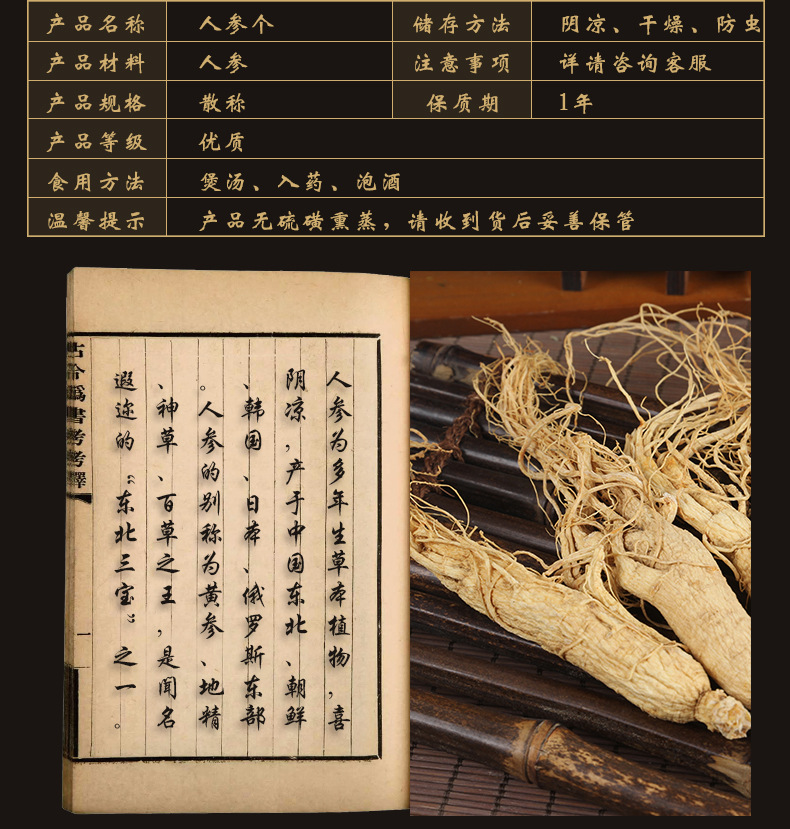 产品名称 人参个 储存方法 阴凉、干燥、防虫
产品材料 人参 注意事项 详请咨询客服
产品规格 散称 保质期 1年
产品等级 优质
食用方法 煲汤、入药、泡酒
温馨提示 产品无硫磺熏蒸，请收到货后妥善保管
人参为多年生草本植物，喜
阴凉，产于中国东北、朝鲜
、韩国、日本、俄罗斯东部
。人参的别称为黄参、地精
、神草、百草之王，是闻名
遐迩的“东北三宝”之一。
古今偽書考考釋
一